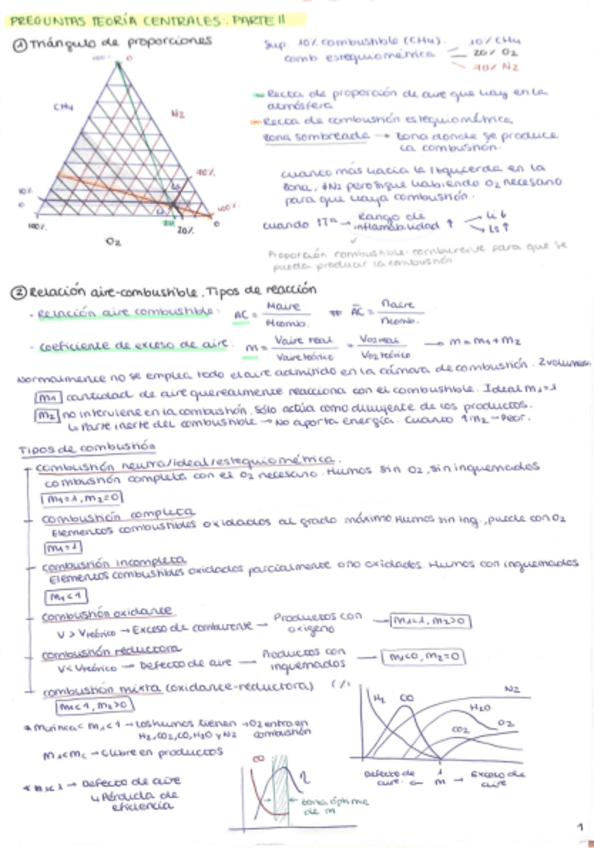 PREGUNTAS TEORÍA CENTRALES. PARTE II
① Triángulo de proporciones
Sup. 10% combustible (CH4).
comb estequiométrica
10% CH4
20% O2
70% N2
CH4
N2
O2
10%
0
100%
20%
0
— Recta de proporción de aire que hay en la
atmósfera
— Recta de combustión estequiométrica
zona sombreada → zona donde se produce
la combustión.
cuanto más hacia la izquierda en la
zona, ↓N2 pero sigue habiendo O2 necesario
para que haya combustión.
cuando ↑Tª → Rango de
inflamabilidad ↑
Li ↓
Ls ↑
Proporción combustible-comburente para que se
pueda producir la combustión
② Relación aire-combustible. Tipos de reacción
· Relación aire combustible: AC = Maire / Mcomb.
AC = naire / ncomb.
· coeficiente de exceso de aire: m = Vaire real / Vaire teórico = VO2 real / VO2 teórico → m = m1 + m2
Normalmente no se emplea todo el aire admitido en la cámara de combustión. 2 volúmenes
m1 cantidad de aire que realmente reacciona con el combustible. Ideal m1=1
m2 no interviene en la combustión. Sólo actúa como diluyente de los productos.
la parte inerte del combustible → No aporta energía. Cuando ↑m2 → Peor.
Tipos de combustión
combustión neutra/ideal/estequiométrica.
combustión completa con el O2 necesario. Humos sin O2, sin inquemados
m1=1, m2=0
combustión completa
Elementos combustibles oxidados al grado máximo Humos sin inq., puede con O2
m1=1
combustión incompleta
Elementos combustibles oxidados parcialmente o no oxidados. Humos con inquemados
m1<1
combustión oxidante
V > Vteórico → Exceso de comburente → Productos con
oxígeno
→ m1=1, m2>0
combustión reductora
V < Vteórico → Defecto de aire → Productos con
inquemados
→ m1<0, m2=0
combustión mixta (oxidante-reductora)
m1<1, m2>0
< m1 < 1 → los humos tienen
H2, CO2, CO, H2O y N2
→ O2 entra en
combustión
→ C libre en productos
→ Defecto de aire
↳ Pérdida de
eficiencia
CO
η
zona óptima
de m
H2
CO
N2
H2O
O2
CO2
Defecto de
aire
1
m
Exceso de
aire
1